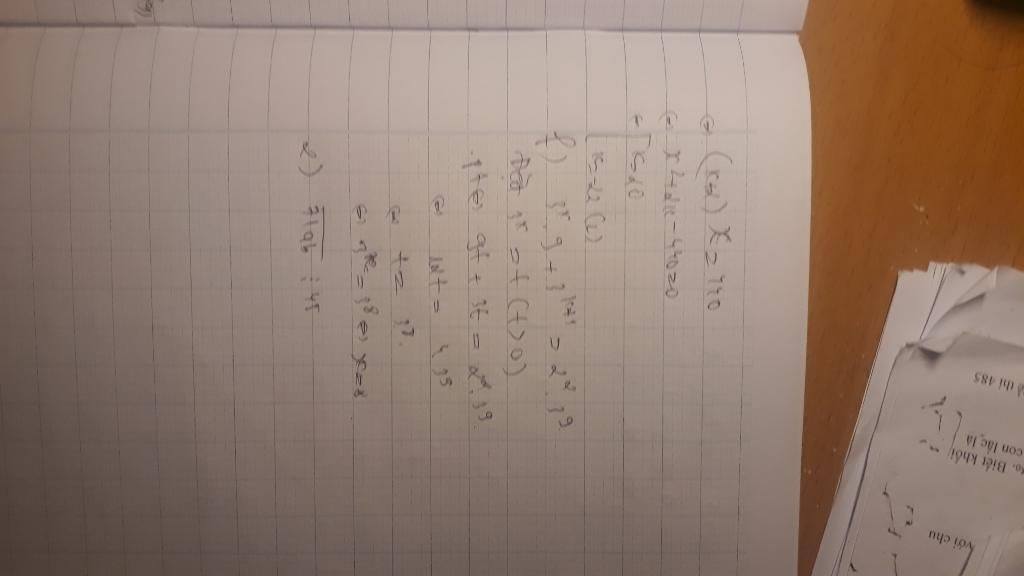 ⇔ (x+2) x = 440
⇔ x²+2x-440=0
⇔ [x=20
[x=-22 (L)
f) 3ˣ.9 + 3ˣ⁺¹ = 2².3⁹
Đặt 3ˣ = t (t>0)
pt ⇔ 9t + 3t = 2².3⁹
⇔ 12t = 4.3⁹
⇔ t = 3⁸.
⇔ 3ˣ = 3⁸ ⇔ x=8
2) 71ab : 45
ề thi 485
to. Biết khối
con lắc là
với chu